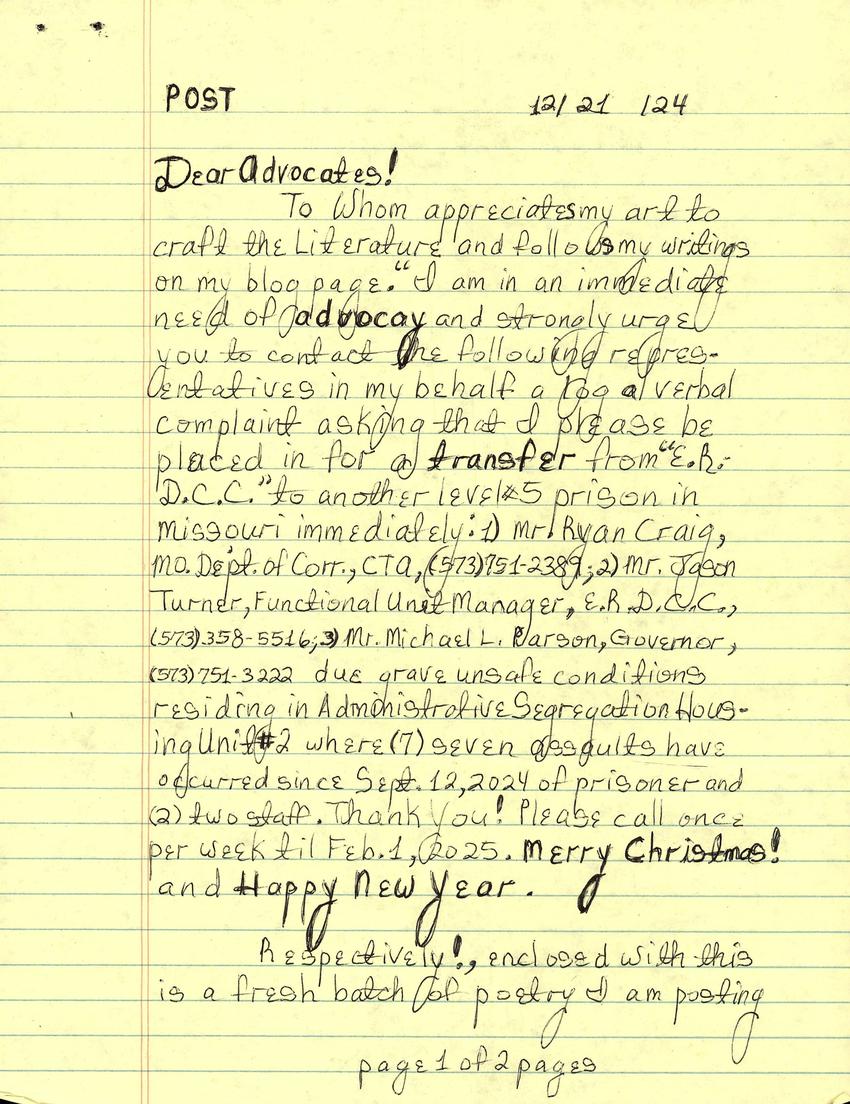 POST 12/21/24
Dear Advocates!
To Whom appreciates my art to
craft the Literature and follows my writings
on my blog page. "I am in an immediate
need of advocay and strongly urge
you to contact the following repres-
entatives in my behalf a log al verbal
complaint asking that I please be
placed in for a transfer from "E.R.-
D.C.C." to another level #5 prison in
Missouri immediately: 1) Mr. Ryan Craig,
MO. Dept. of Corr., CTA, (573)751-2389; 2) Mr. Jason
Turner, Functional Unit Manager, E.R.D.C.C.,
(573)358-5516; 3) Mr. Michael L. Parson, Governor,
(573)751-3222 due grave unsafe conditions
residing in Administrative Segregation Hous-
ing Unit #2 where (7) seven assaults have
occurred since Sept. 12, 2024 of prisoner and
(2) two staff. Thank You! Please call once
per week til Feb. 1, 2025. Merry Christmas!
and Happy New Year.
Respectively!, enclosed with this
is a fresh batch of poetry I am posting
page 1 of 2 pages